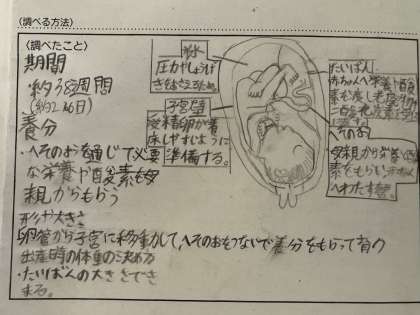 〈調べる方法〉
〈調べたこと〉
期間
約38週間
(約266日)
養分
・へそのおを通じて必要
な栄養や酸素を母
親からもらう
形や大きさ
卵管から子宮に移動して、へそのおをつないで養分をもらって育つ
出産時の体重の決め方
・たいばんの大きさでき
まる。
羊水
圧力やしょうげ
きをおさえるため
子宮壁
受精卵が着
床しやすいように
準備する。
たいばん
赤ちゃんへ栄養や酸
素を渡し老廃物や
二酸化炭素を
へそのお
母親から栄養や酸
素をもらい赤ちゃん
へわたす管。